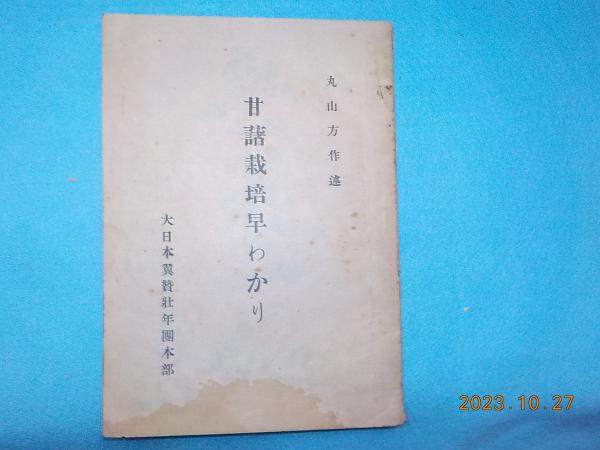 丸山方作述
甘藷栽培早わかり
大日本翼贊壯年團本部
2023.10.27